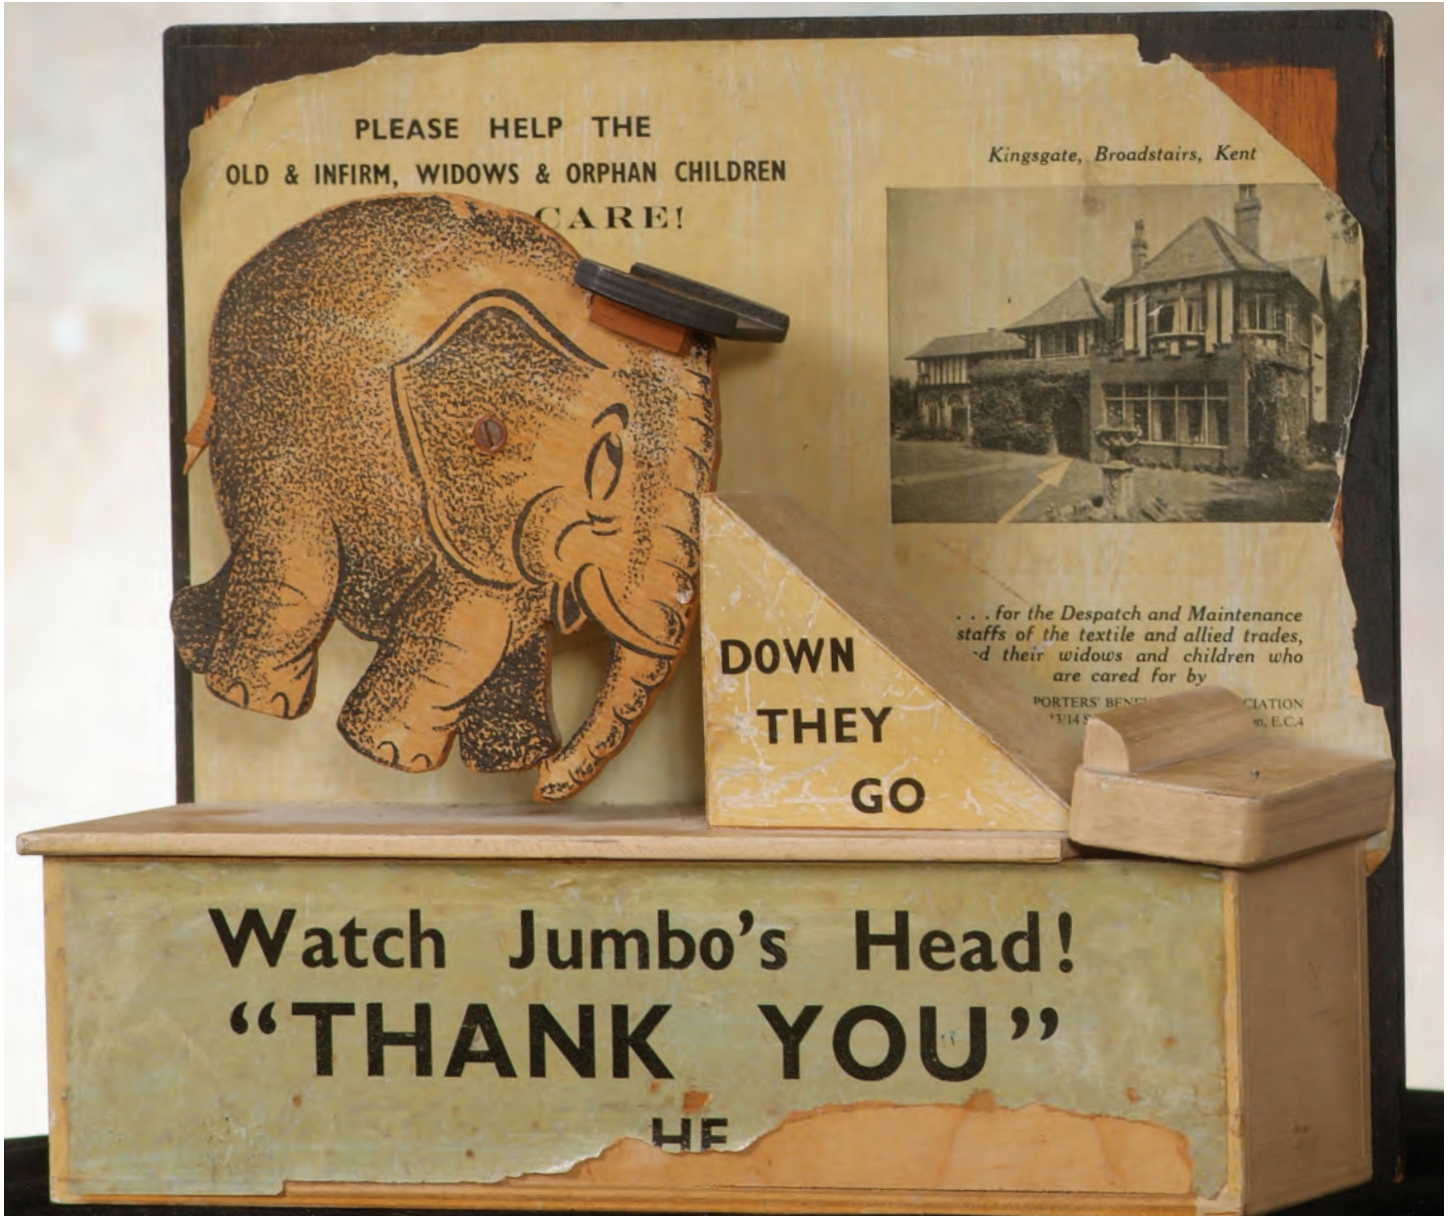 PLEASE HELP THE
OLD & INFIRM, WIDOWS & ORPHAN CHILDREN
CARE!
Kingsgate, Broadstairs, Kent
. . . for the Despatch and Maintenance
staffs of the textile and allied trades,
their widows and children who
are cared for by
PORTERS'
13/14 E.C.4
DOWN
THEY
GO
Watch Jumbo's Head!
“THANK YOU”
HE